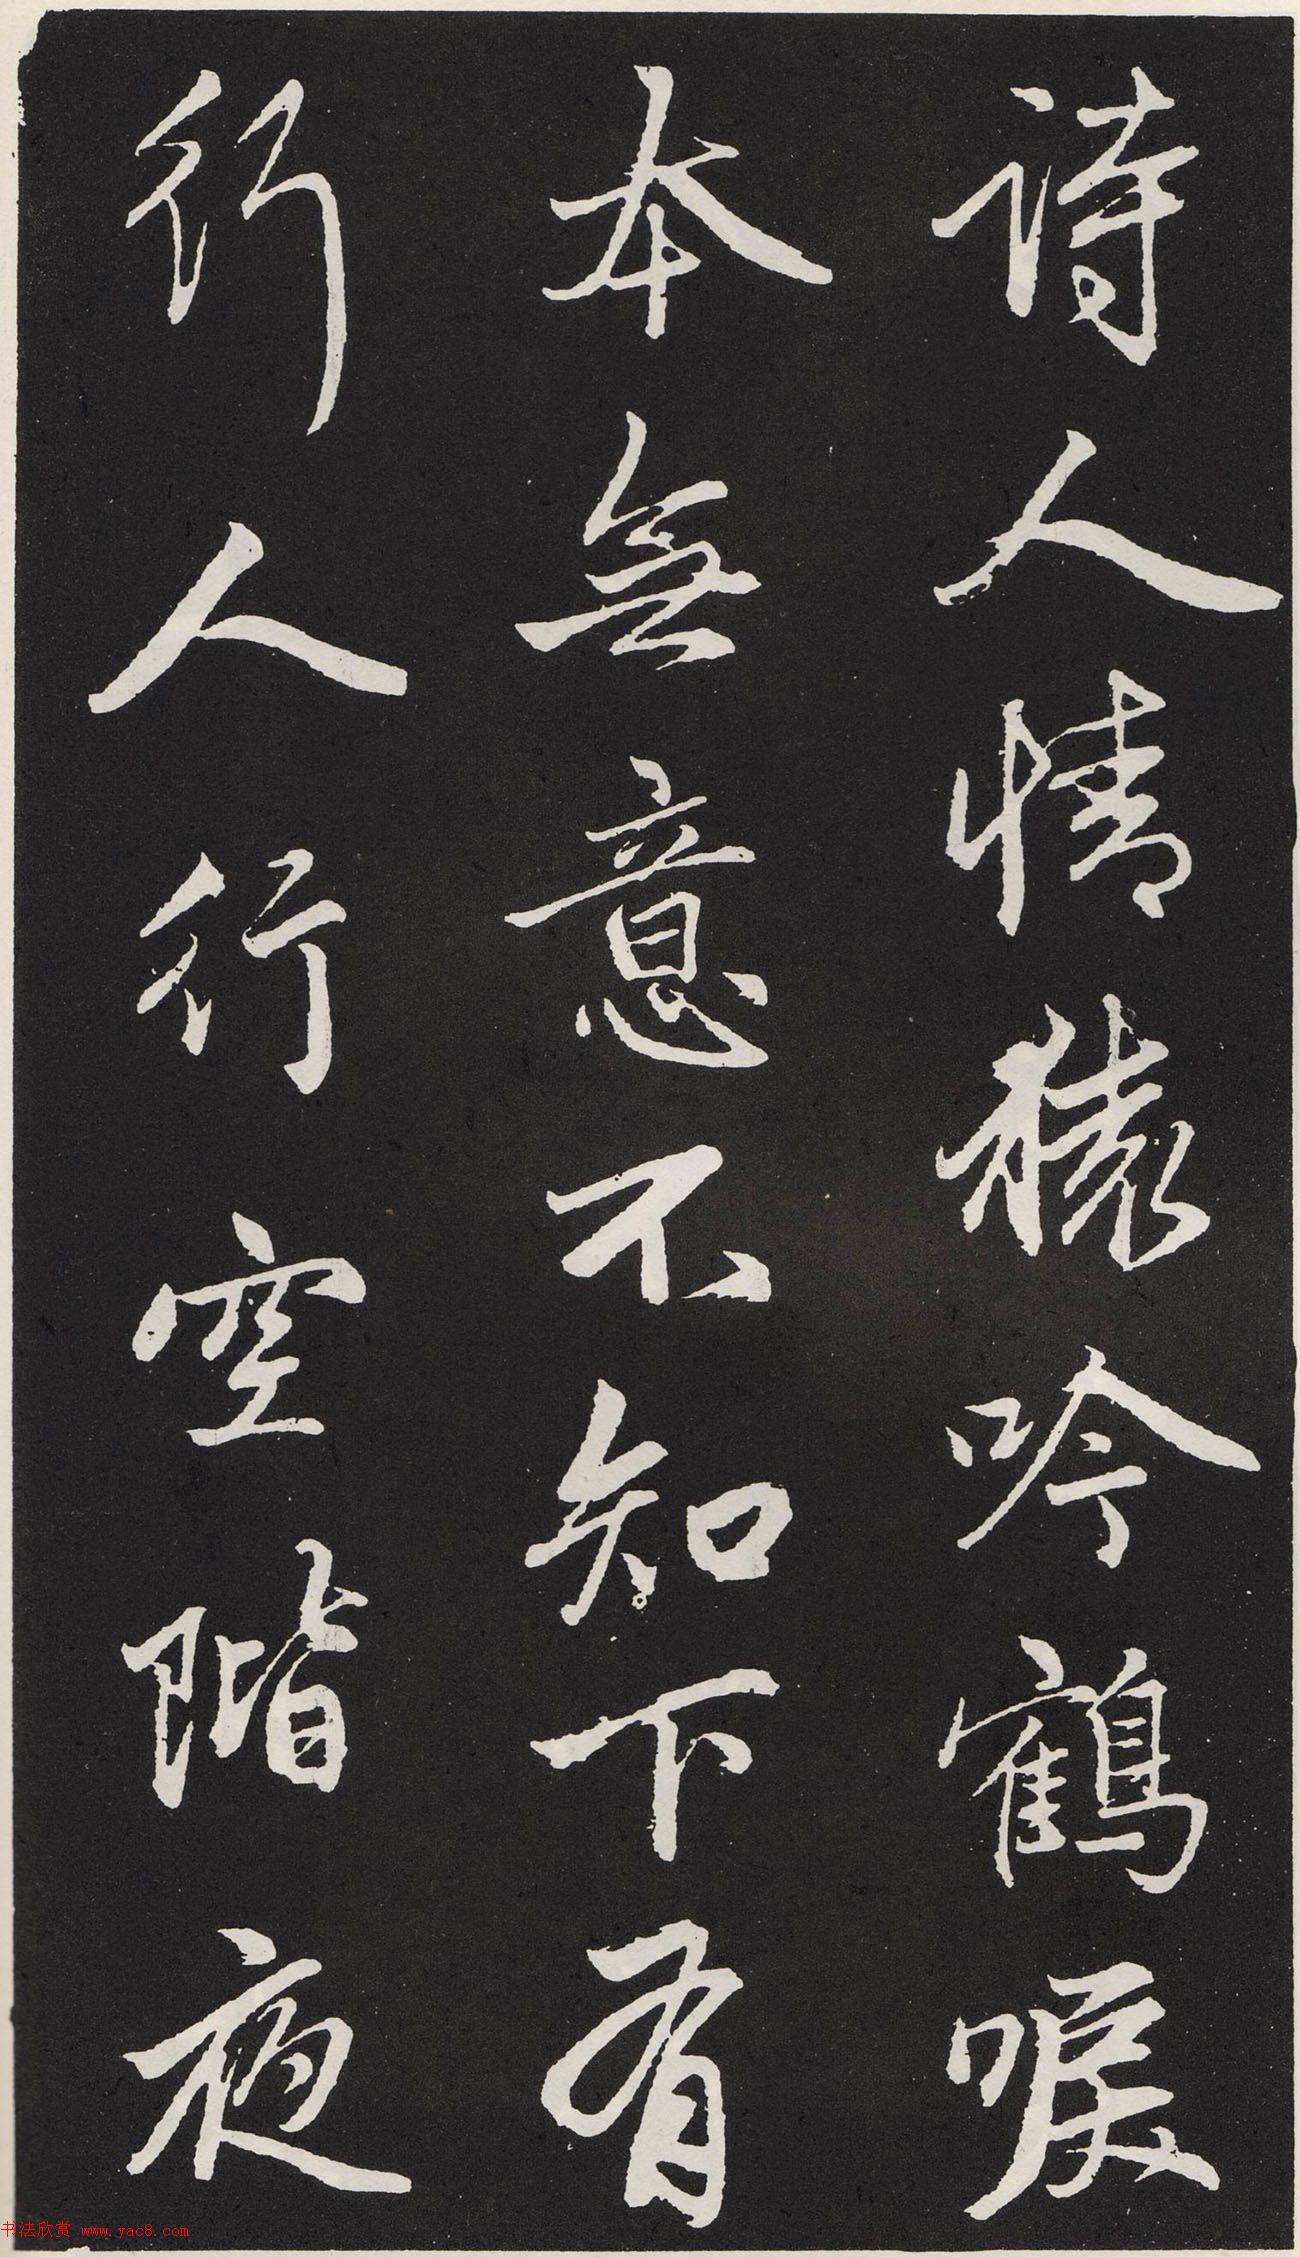 詩人情猿吟鶴唳
本無意不知下有
行人行空階夜
书法欣赏 www.yac8.com